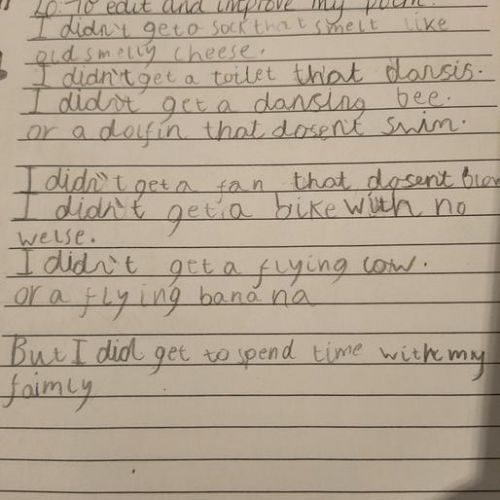 LO: To edit and improve my poem.
I didn't get a sock that smelt like
old smelly cheese.
I didn't get a toilet that dansis.
I didn't get a dansing bee.
or a dolfin that dosent swim.
I didn't get a fan that dosent blow
I didn't get a bike with no
welse.
I didn't get a flying cow.
or a flying banana
But I did get to spend time with my
faimly